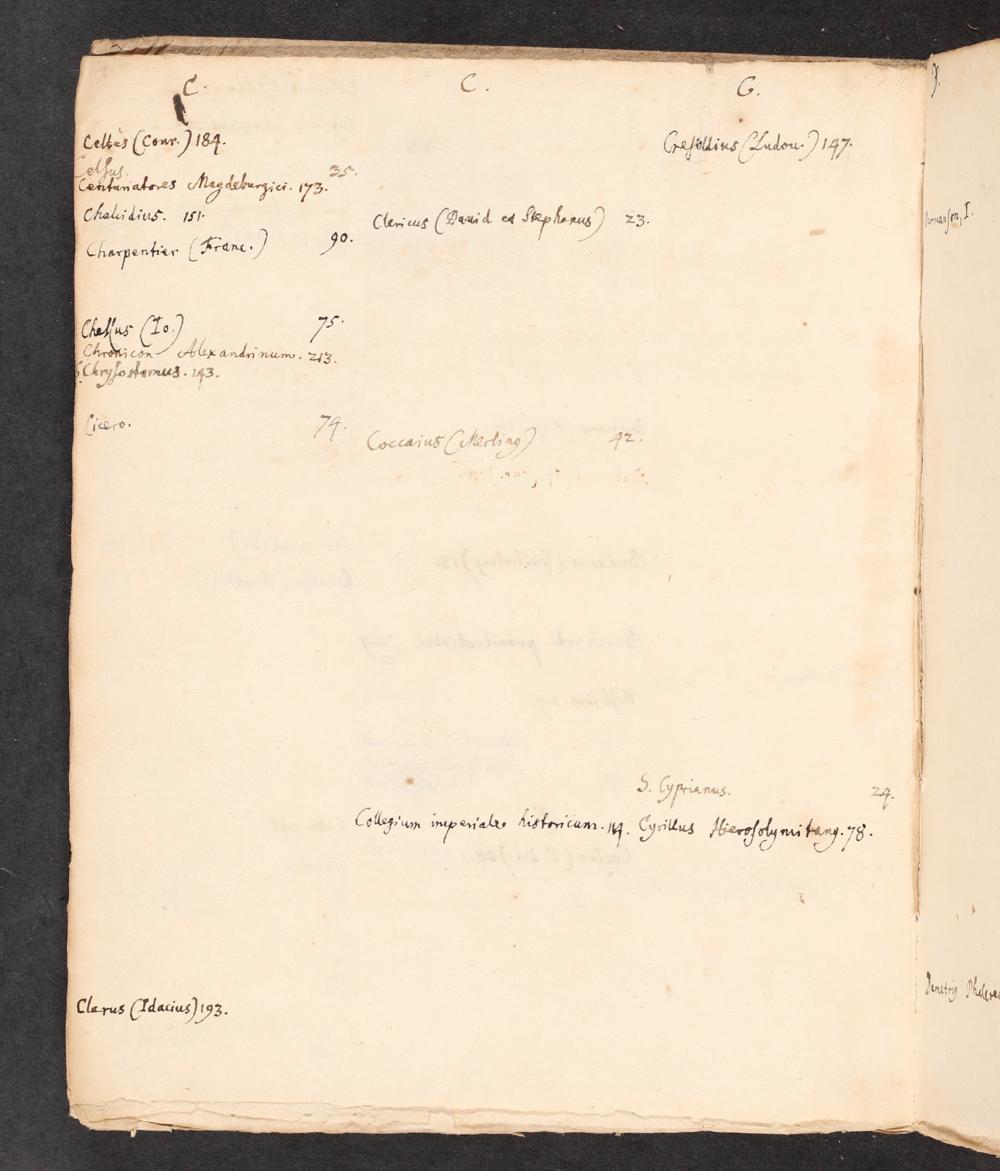 C.
Celtes (Conr.) 184.
Celsus. 35.
Centuriatores Magdeburgici. 173.
Chalcidius. 151.
Charpentier (Franc.) 90.
Chessus (Io.) 75.
Chronicon Alexandrinum. 213.
S. Chrysostomus. 143.
Cicero. 74.
Clarus (Idacius) 193.
C.
Clericus (David et Stephanus) 23.
Coccaius (Merling) 42.
Collegium imperiale historicum. 114.
C.
Cresollius (Ludov.) 147.
S. Cyprianus. 24.
Cyrillus Hierosolymitang. 78.